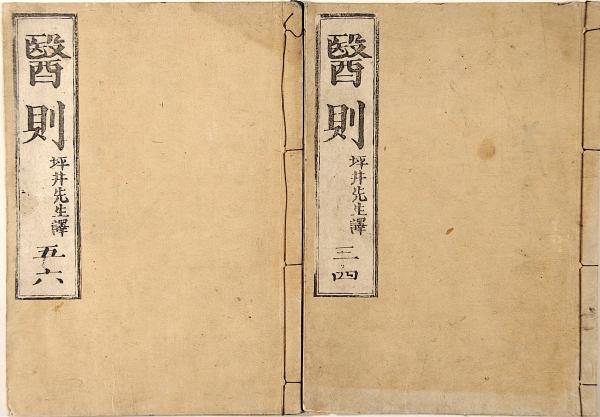 醫則
坪井先生譯
三四
醫則
坪井先生譯
五六